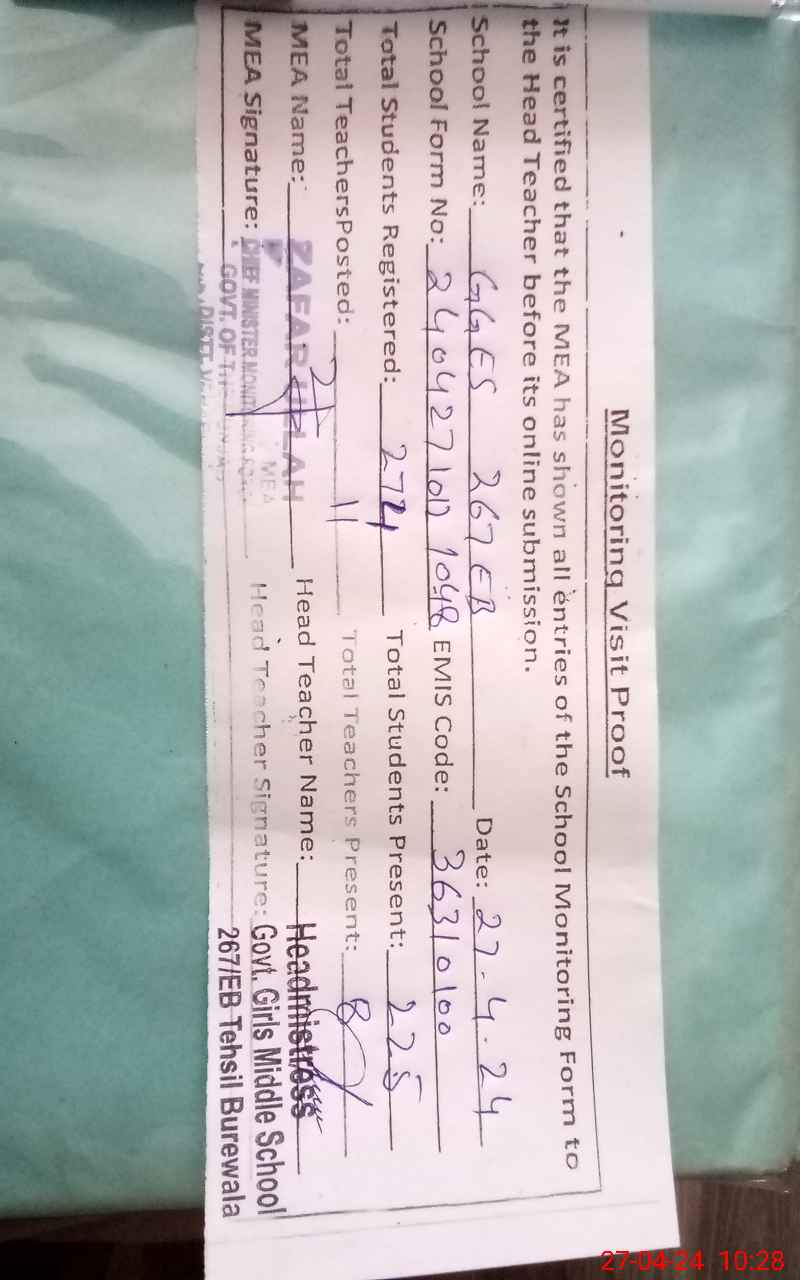 Monitoring Visit Proof
It is certified that the MEA has shown all entries of the School Monitoring Form to
the Head Teacher before its online submission.
School Name: GGES 267 EB Date: 27.4.24
School Form No: EMIS Code: 36310100
Total Students Registered: 274 Total Students Present: 225
Total TeachersPosted: 11 Total Teachers Present: 8
MEA Name: ZAFAR ULLAH Head Teacher Name: Headmistress
MEA
MEA Signature: CHIEF MINISTER MONIT Head Teacher Signature: Govt. Girls Middle School
GOVT. OF 267/EB Tehsil Burewala
DISTT.
27-04-24 10:28